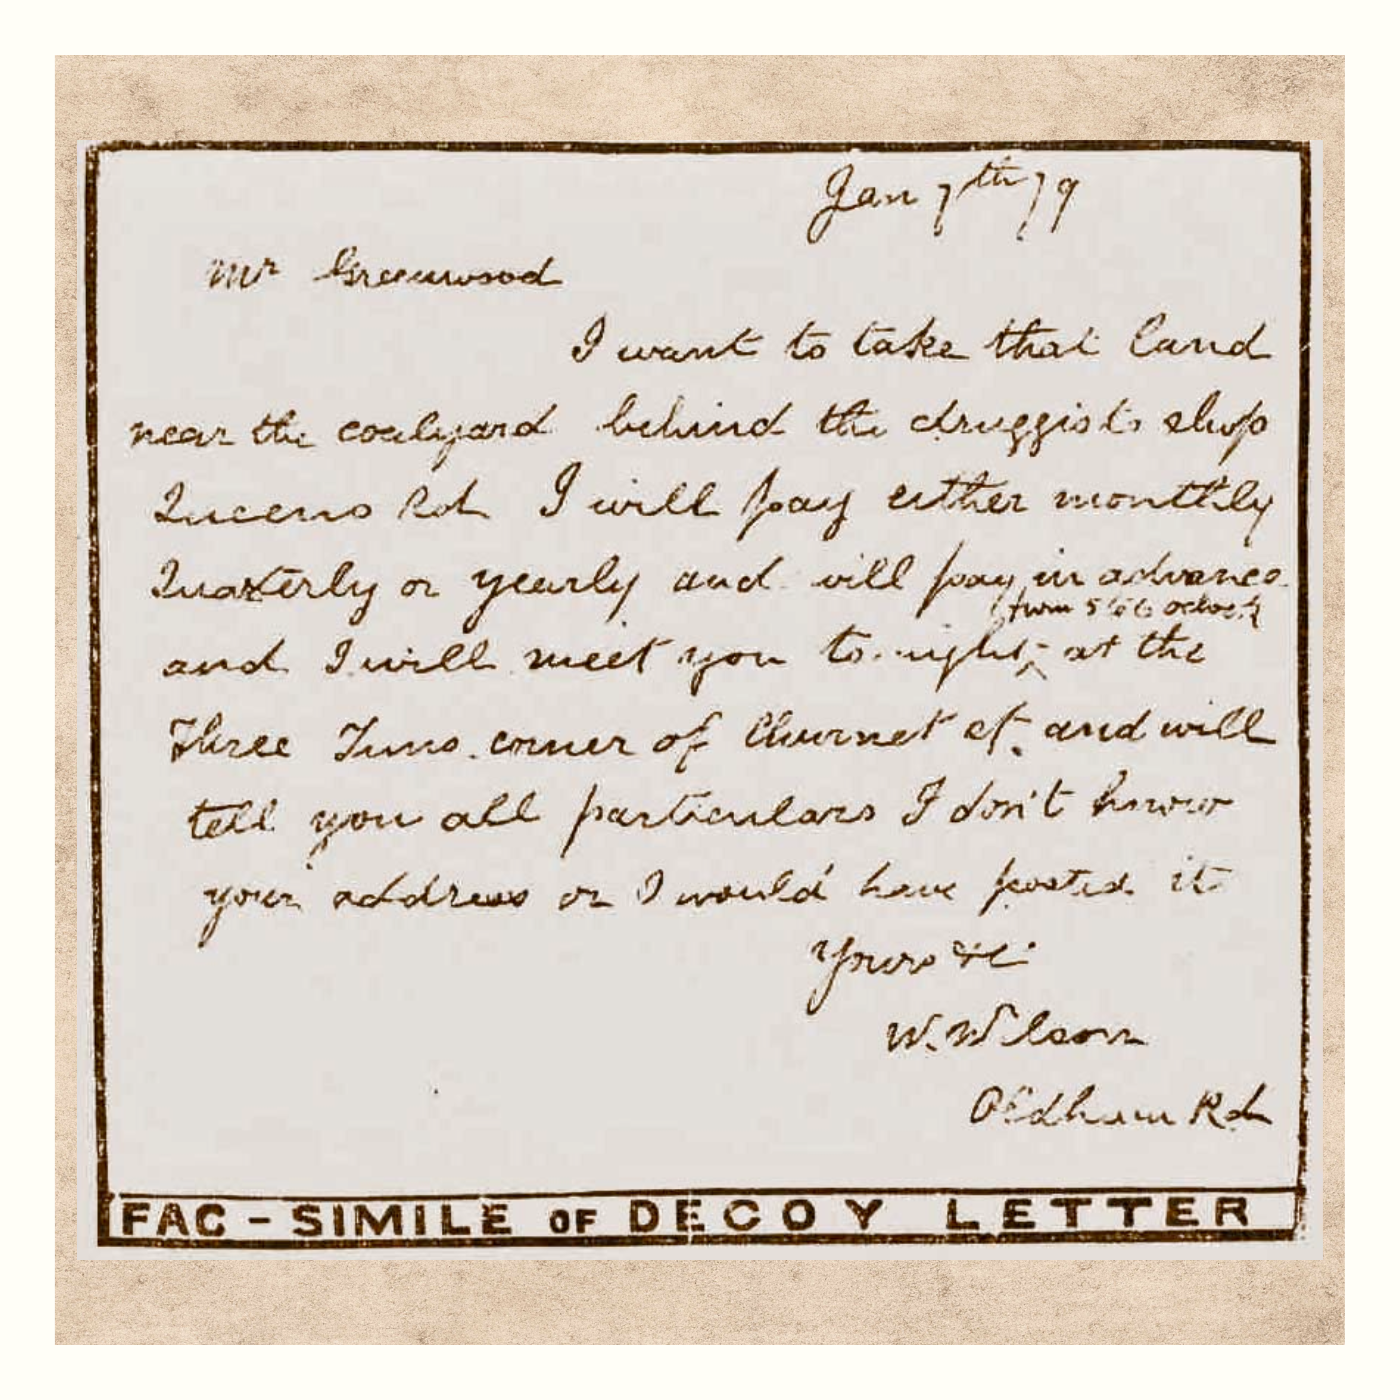 Jan 7th 79
Mr Greenwood
I want to take that land
near the coalyard behind the druggists shop
Queens Rd I will pay either monthly
Quarterly or yearly and will pay in advance
from 5 to 6 oclock
and I will meet you to-night ^ at the
Three Tuns corner of Churnet st. and will
tell you all particulars I don't know
your address or I would have posted it
Yours &c
W. Wilson
Oldham Rd
FAC-SIMILE OF DECOY LETTER